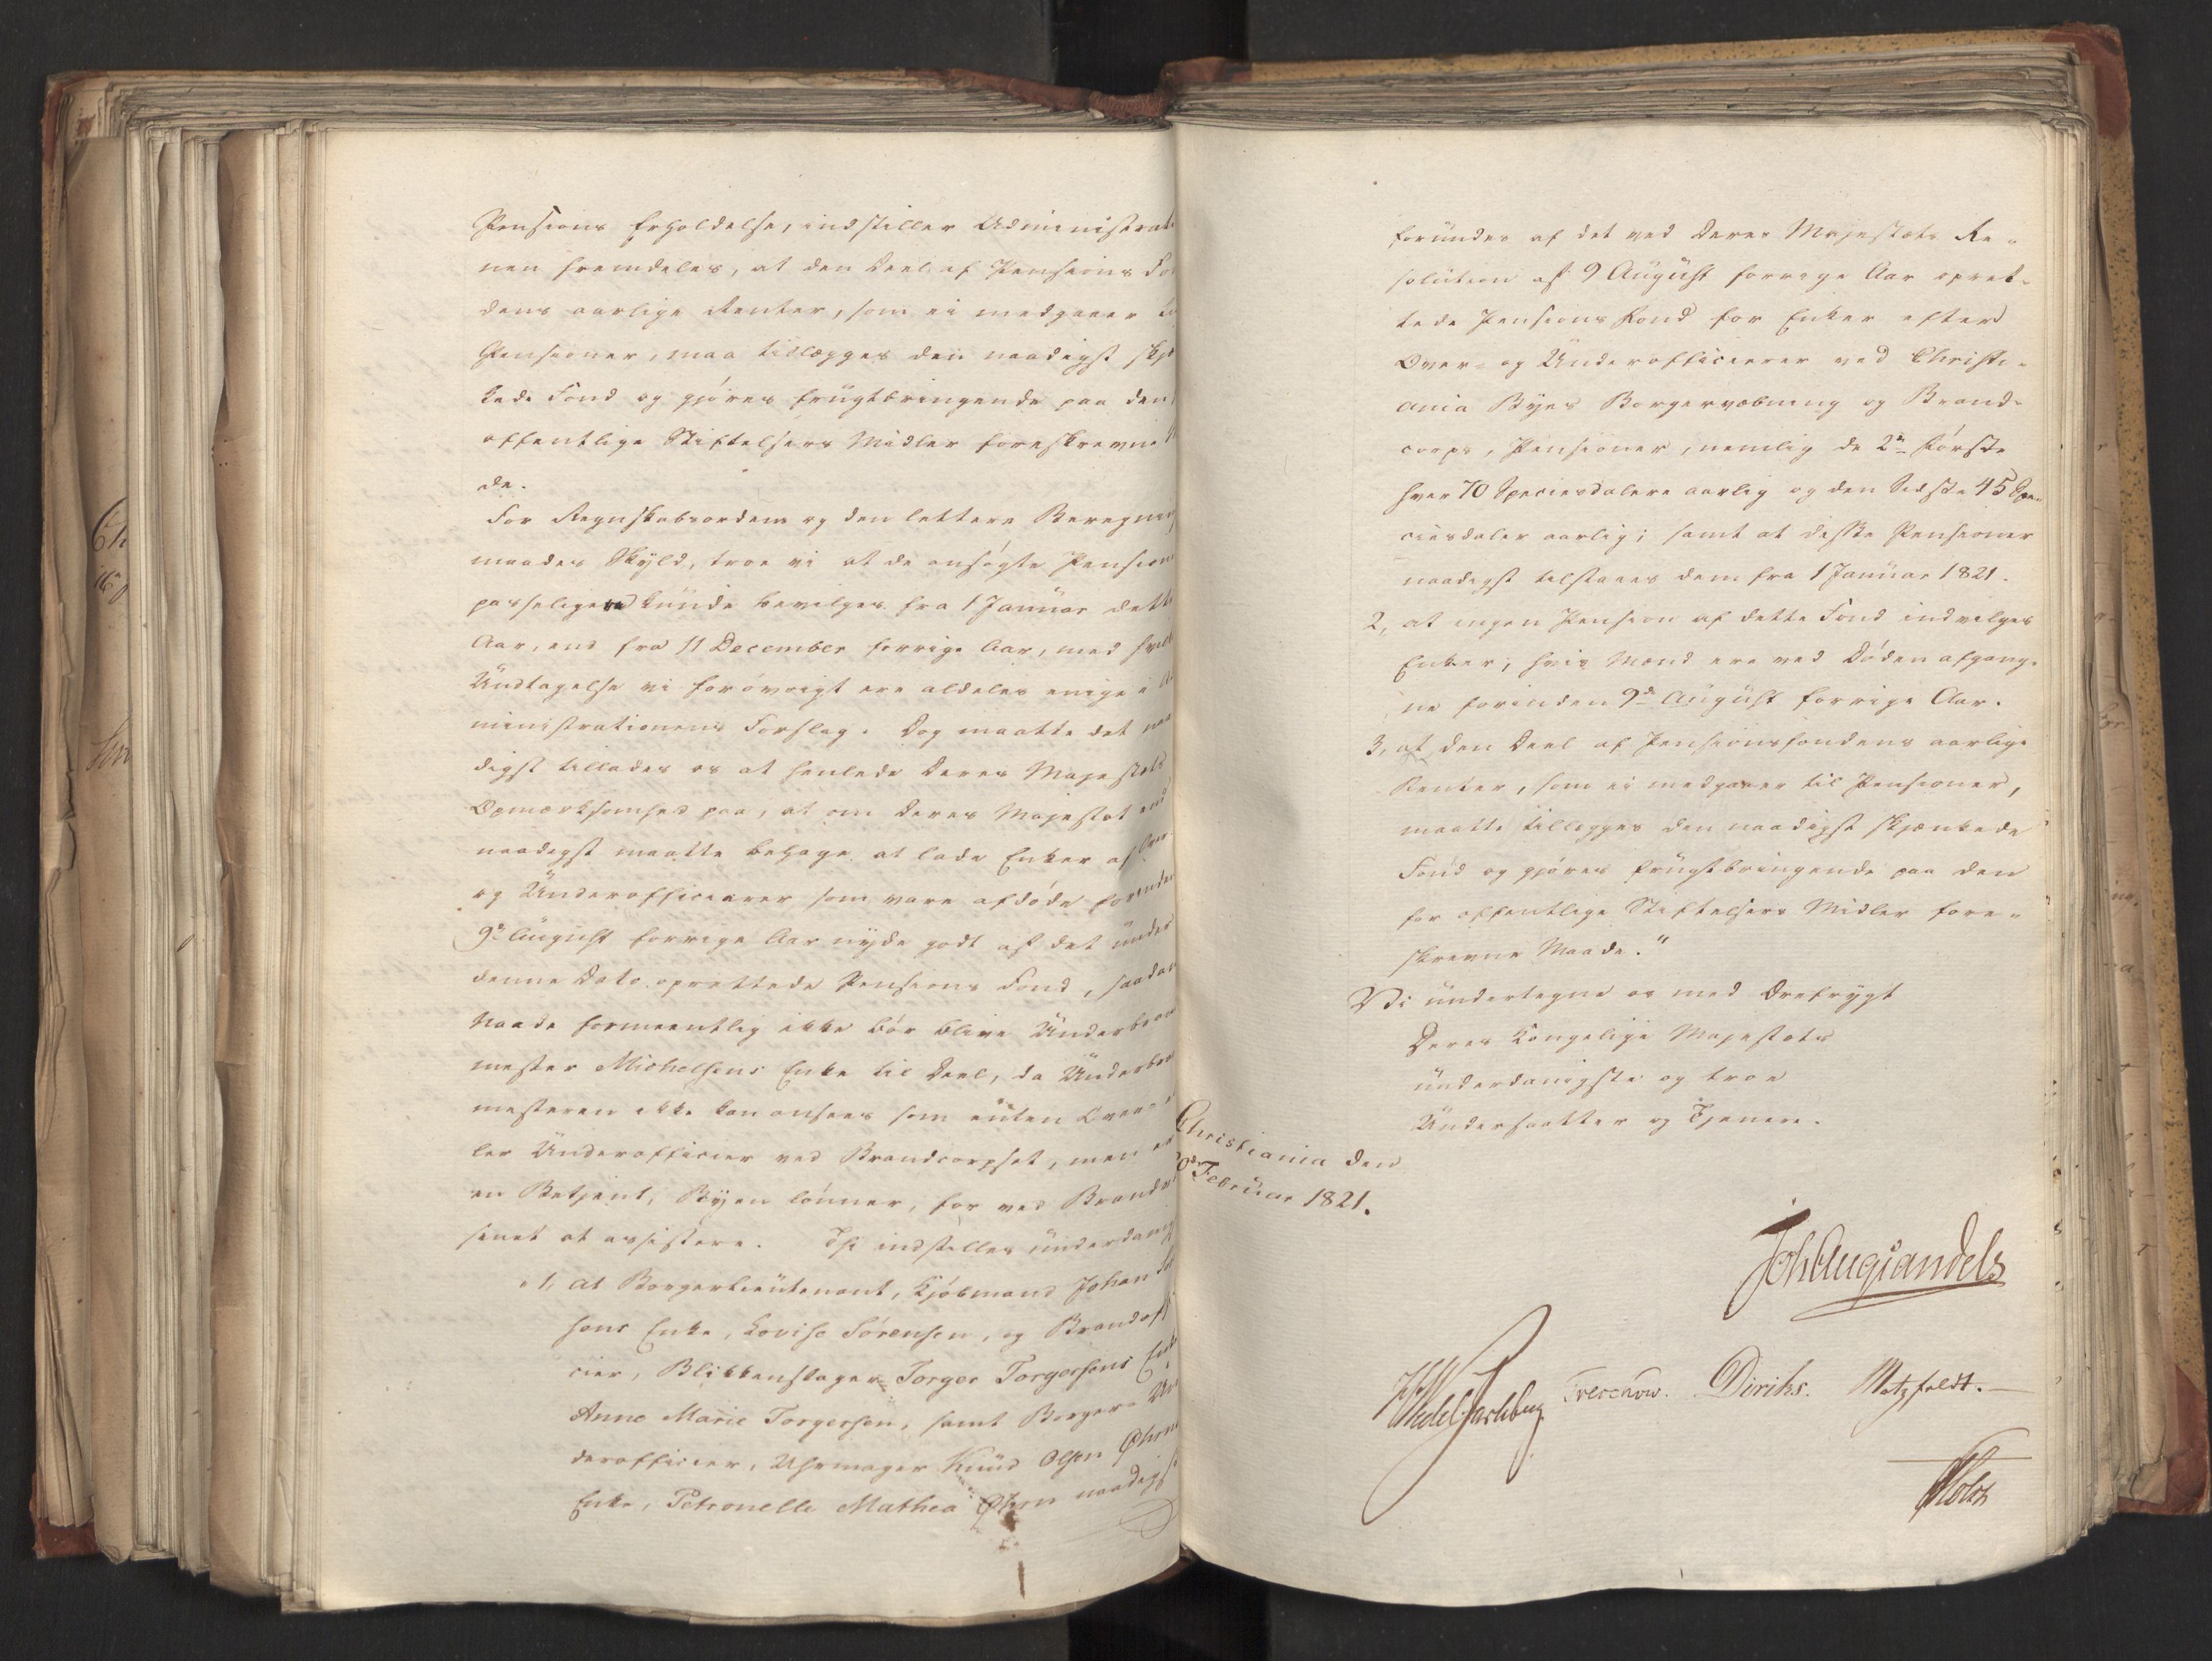 Pensions Erholdelse, indstiller Administrati
nen fremdeles, at den Deel af Pensions Fo
dens aarlige Renter, som ei medgaaer ti
Pensioner, maa tillægges den naadigst skjæ
kede Fond og gjøres frugtbringende paa den
offentlige Stiftelsers Midler foreskrevne
de.
For Regnskabsordens og den lettere Beregnings
maades Skyld, troe vi at de ansøgte Pensioner
passeligere kunde bevilges fra 1 Januar dette
Aar, end fra 11 December forrige Aar, med hvil
Undtagelse vi forøvrigt ere aldeles enige i Ad
ministrationens Forslag. Dog maatte det naa
digst tillades os at henlede Deres Majestæts
Opmærksomhed paa, at om Deres Majestæt end
naadigst maatte behage at lade Enker af Over
og Underofficierer som vare afdøde forinden
9de August forrige Aar nyde godt af det under
denne Dato oprettede Pensions Fond, saadan
Naade formeentlig ikke bør blive Underbrand
mester Michelsens Enke til Deel, da Underbrand
mesteren ikke kan ansees som enten Over- el
ler Underofficier ved Brandcorpset, men er
en Betjent, Byen lønner, for ved Brandvæ
senet at assistere. Thi indstilles underdanigst
"1, at Borgerlieutenant, Kjøbmand Johan Sø
sens Enke, Lovise Sørensen, og Brandoffi
cier, Blikkenslager Torger Torgersens Enke
Anne Marie Torgersen, samt Borger- Un
derofficier, Uhrmager Knud Olsen Øhrns
Enke, Petronelle Mathea Øhrn naadigst
forundes af det ved Deres Majestæts Re-
solution af 9 August forrige Aar opret-
tede Pensions Fond for Enker efter
Over- og Underofficierer ved Christi-
ania Byes Borgervæbning og Brand-
corps, Pensioner, nemlig de 2de første
hver 70 Speciesdalere aarlig og den Sidste 45 Spe-
ciesdaler aarlig; samt at disse Pensioner
naadigst tilstaaes dem fra 1 Januar 1821.
2, at ingen Pension af dette Fond indvilges
Enker, hvis Mænd ere ved Døden afgang-
ne forinden 9de August forrige Aar.
3, at den Deel af Pensionsfondens aarlige
Renter, som ei medgaaer til Pensioner,
maatte tillægges den naadigst skjænkede
Fond og gjøres frugtbringende paa den
for offentlige Stiftelsers Midler fore-
skrevne Maade."
Vi undertegne os med Ærefrygt
Deres Kongelige Majestæts
underdanigste og troe
Undersaatter og Tjenere.
Christiania den
0de Februar 1821.
Joh Aug Sandels
HWedel Jarlsberg Treschow. Diriks. Motzfeldt.
Holst